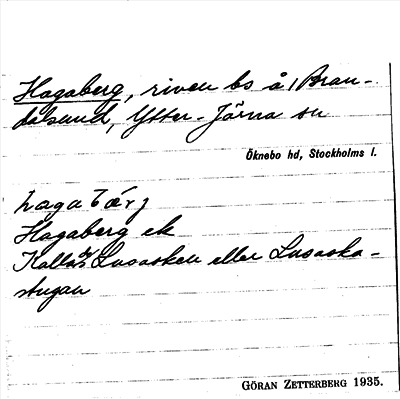 Hagaberg, riven bs å Bran-
dalsund, Ytter-Järna sn
Öknebo hd, Stockholms l.
hagabärj
Hagaberg ek
Kallas Lusasken eller Lusaska-
stugan
GÖRAN ZETTERBERG 1935.